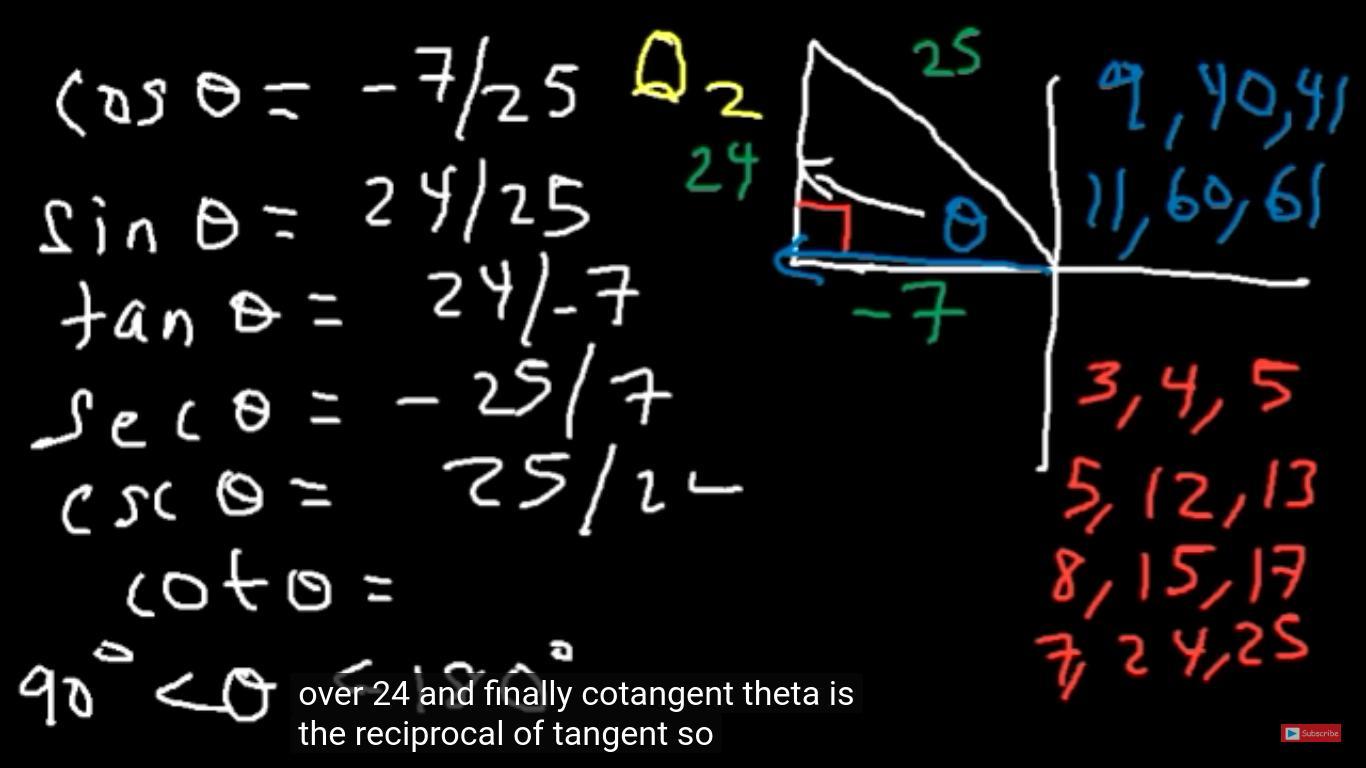 cos θ = -7/25
sin θ = 24/25
tan θ = 24/-7
sec θ = -25/7
csc θ = 25/2
cot θ =
90° < θ < 180°
Q2
25
24
θ
-7
9, 40, 41
11, 60, 61
3, 4, 5
5, 12, 13
8, 15, 17
7, 24, 25
over 24 and finally cotangent theta is
the reciprocal of tangent so
Subscribe